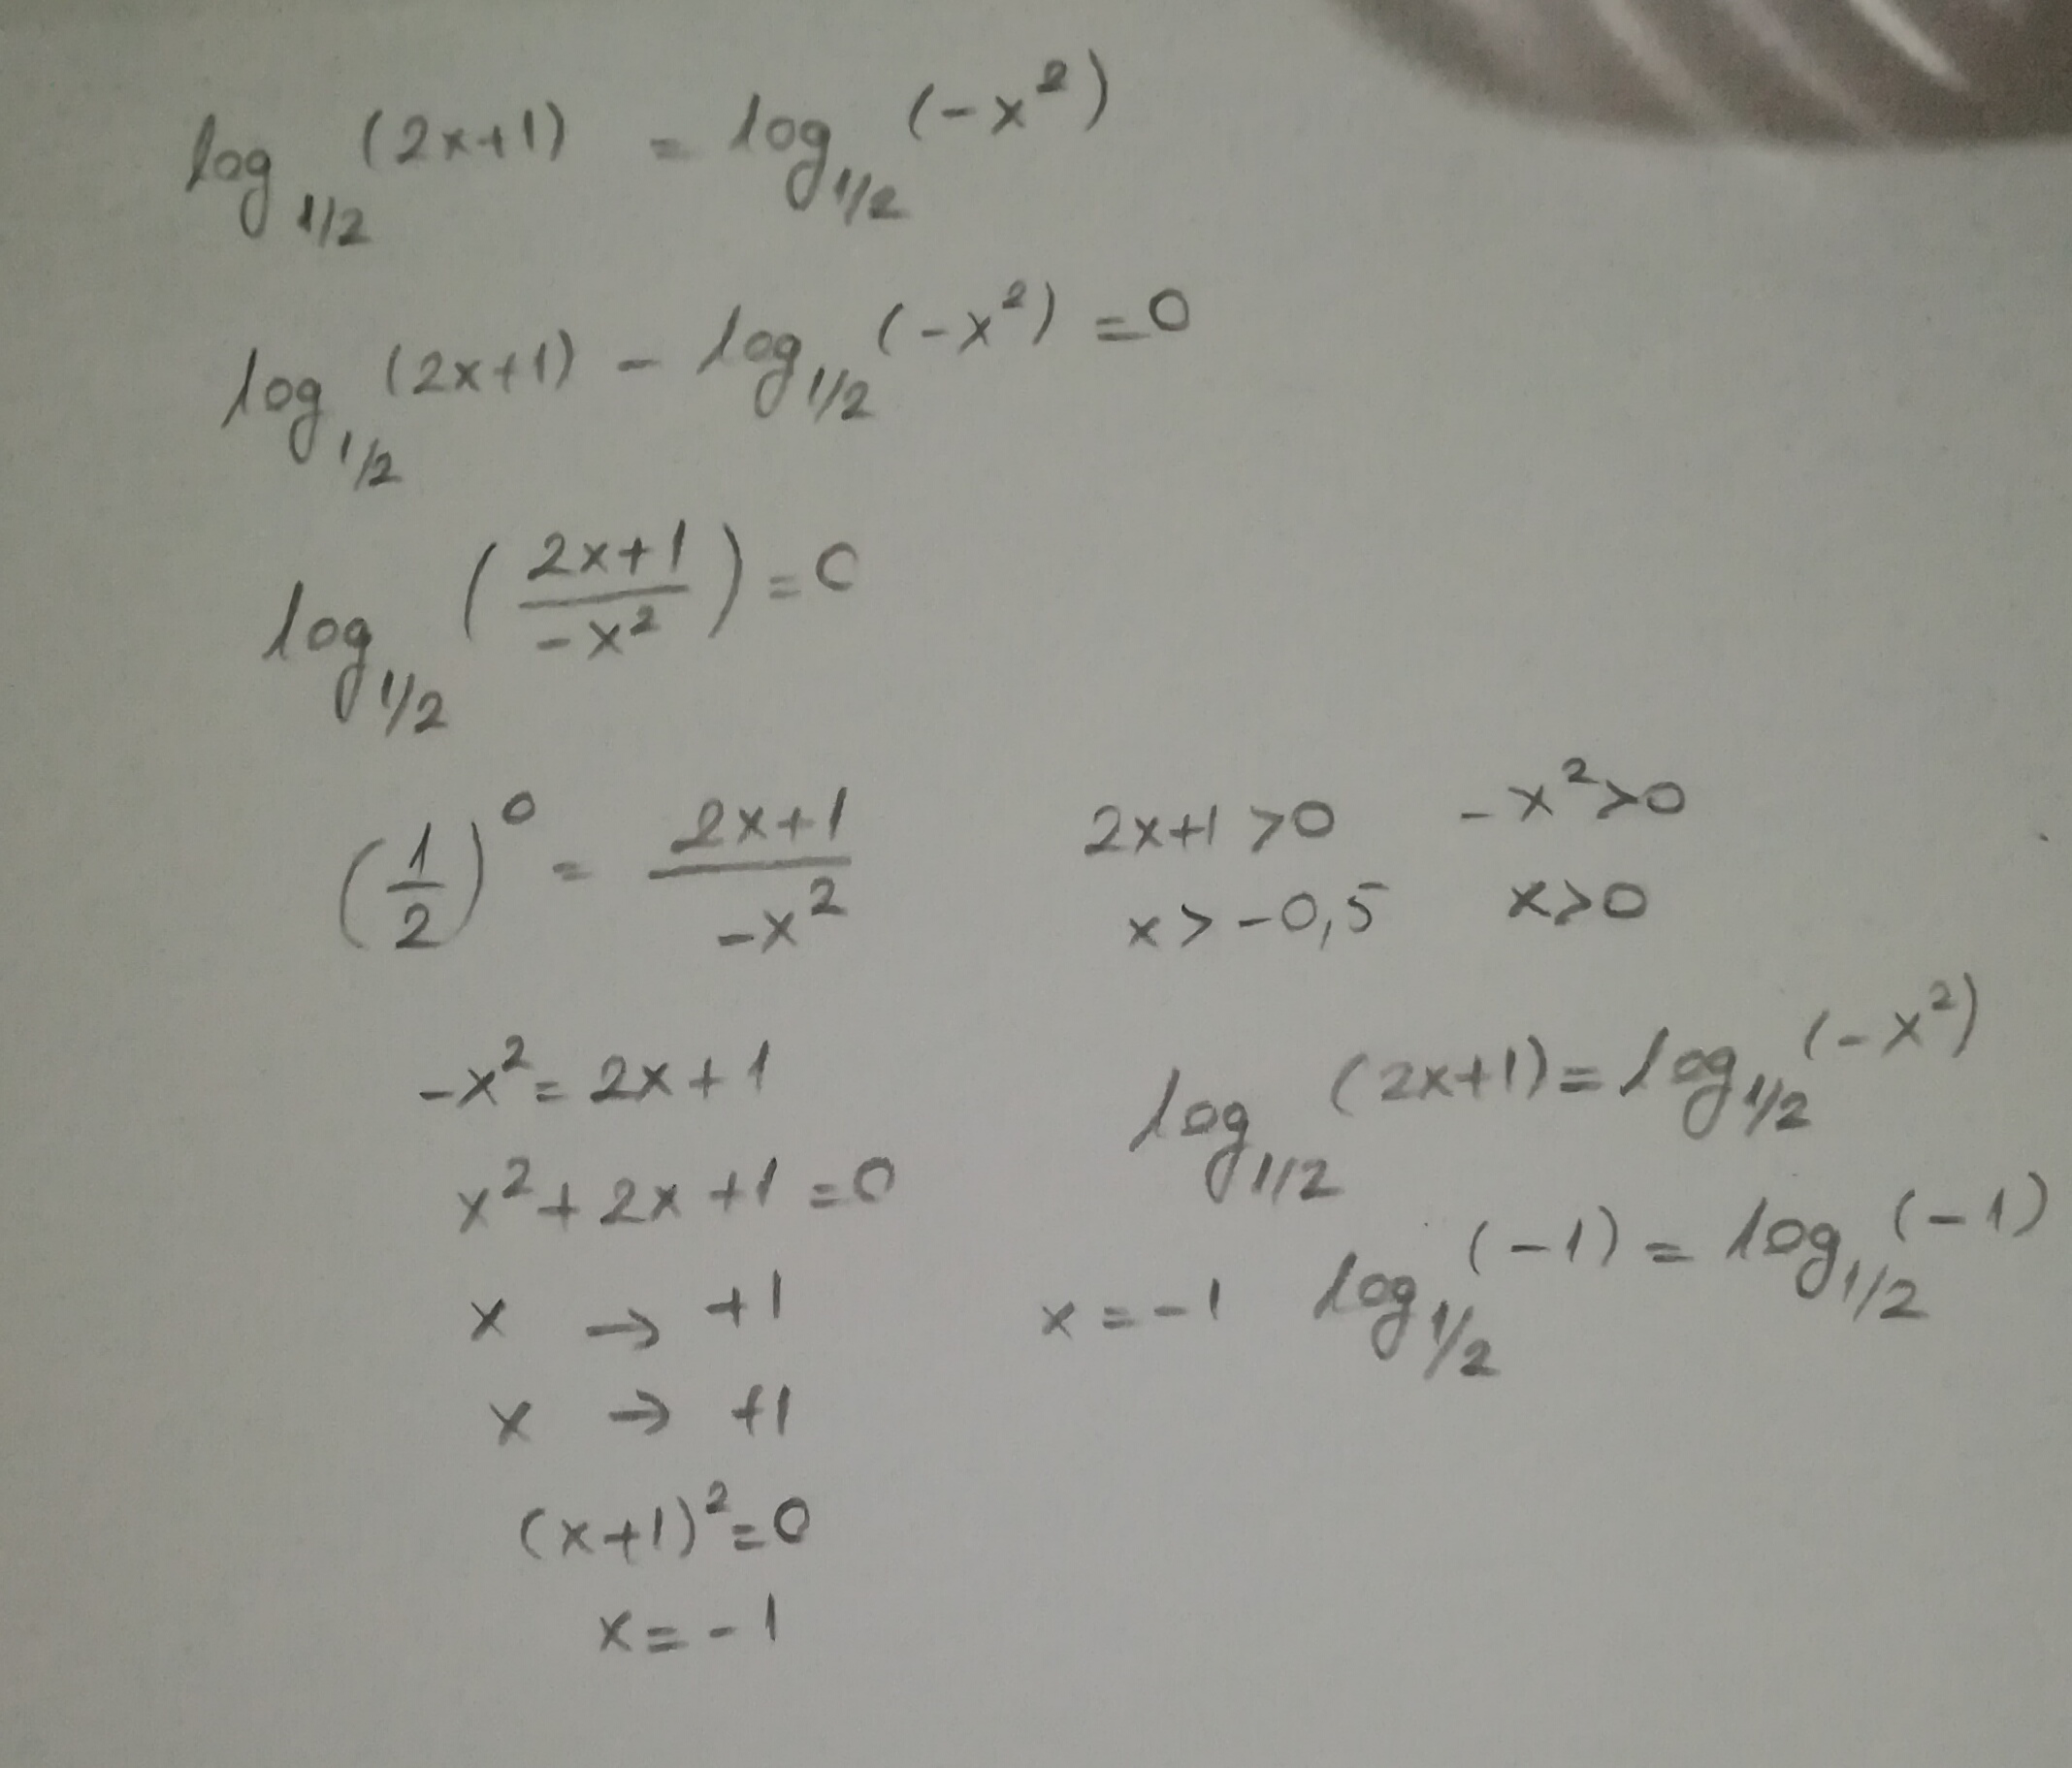 log_{1/2} (2x+1) = log_{1/2} (-x²)
log_{1/2} (2x+1) - log_{1/2} (-x²) = 0
log_{1/2} ((2x+1)/(-x²)) = 0
(1/2)⁰ = (2x+1)/(-x²)
-x² = 2x+1
x² + 2x + 1 = 0
x → +1
x → +1
(x+1)² = 0
x = -1
2x+1 > 0 -x² > 0
x > -0,5 x > 0
log_{1/2} (2x+1) = log_{1/2} (-x²)
x = -1 log_{1/2} (-1) = log_{1/2} (-1)